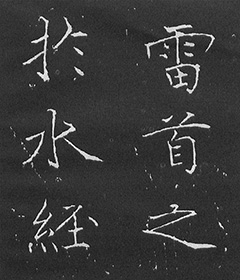 雷首之
於水経